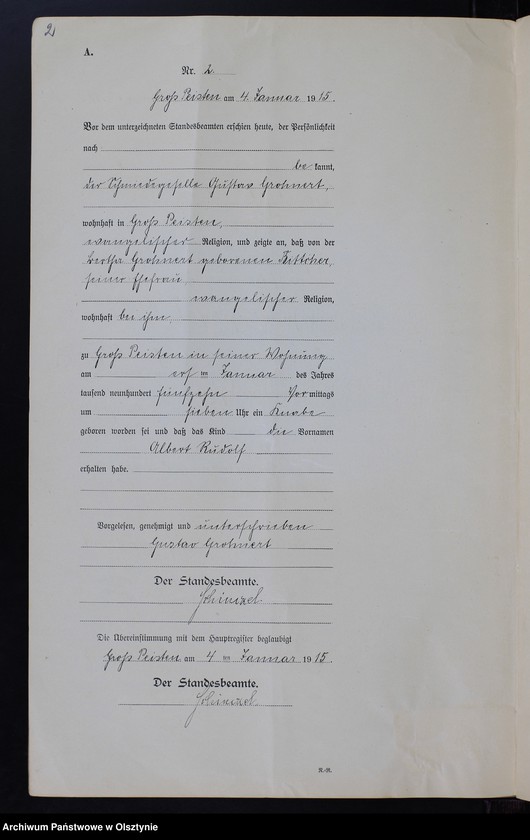 2
A.
Nr. 2.
Groß Peisten am 4. Januar 1915.
Vor dem unterzeichneten Standesbeamten erschien heute, der Persönlichkeit
nach
be kannt,
der Schmiedegeselle Gustav Grohnert,
wohnhaft in Groß Peisten,
evangelischer Religion, und zeigte an, daß von der
Bertha Grohnert geborenen
seiner Ehefrau,
evangelischer Religion,
wohnhaft bei ihm,
zu Groß Peisten in seiner Wohnung
am ten Januar des Jahres
tausend neunhundert fünfzehn Vor mittags
um sieben Uhr ein Knabe
geboren worden sei und daß das Kind die Vornamen
Albert Rudolf
erhalten habe.
Vorgelesen, genehmigt und unterschrieben
Gustav Grohnert
Der Standesbeamte.
Die Übereinstimmung mit dem Hauptregister beglaubigt
Groß Peisten am 4 ten Januar 1915.
Der Standesbeamte.
A.-R.
Archiwum Państwowe w Olsztynie